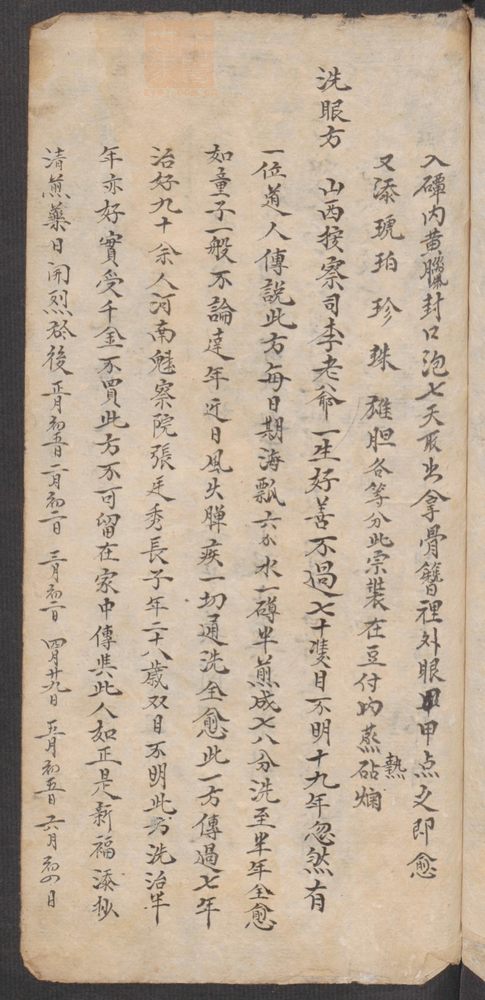 入磹内黄臘封口泡七天取出拿骨簪裡外眼甲点之即愈
又添琥珀 珍珠 雄胆各等分此宗裝在豆付内蒸熱砧烟
洗眼方 山西按察司李老爺一生好善不過七十隻目不明十九年忽然有
一位道人傳說此方每日期海瓢六分水一磹半煎成七八分洗至半年全愈
如童子一般不論遠年近日風火胂疾一切通洗全愈此一方傳過七年
治好九十余人河南魁察院張廷秀長子年二十八歲双目不明此方洗治半
年亦好實受千金不買此方不可留在家中傳與此人如正是新福添抄
清煎藥日開烈於後 正月初五日 二月初二日 三月初二日 四月廿九日 五月初五日 六月初四日